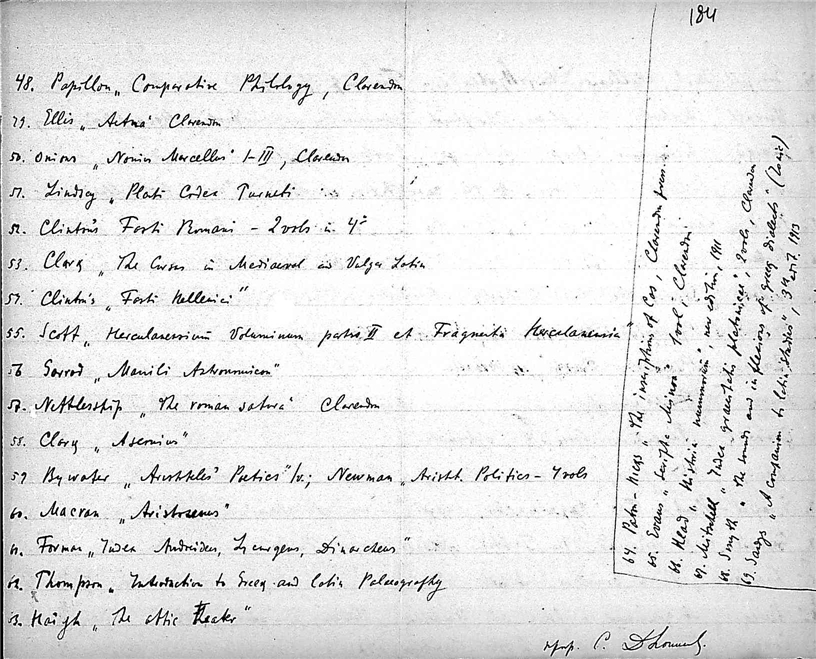 184
48. Papillon „Comparative Philology, Clarendon
49. Ellis „Aetna" Clarendon
50. Onions „Nonius Marcellus" I-III, Clarendon
51. Lindsay „Plauti Codex Turneti
52. Clinton's Fasti Romani – 2 vols in 4º
53. Clark „The Cursus in Mediaeval and Vulgar Latin
54. Clinton's „Fasti Hellenici"
55. Scott „Herculanensium Voluminum partis II et Fragmenta Herculanensia"
56 Garrod „Manili Astronomicon"
57. Nettleship „The roman satura" Clarendon
58. Clark „Asconius"
59 Bywater „Aristoteles' Poetics" ; Newman „Aristt. Politics – 4 vols
60. Macran „Aristoxenus"
61. Forman „Index Andocides, Lycurgus, Dinarchus"
62. Thompson „Introduction to Greek and latin Palaeography
63. Haigh „The attic theater"
64. Paton – Hicks „The inscriptions of Cos, Clarendon press.
65. Evans „Scripta Minoa" 1 vol, Clarendon
66. Head „Historia nummorum", new edition, 1911
67. Mitchell „Index graecitatis platonicae", 2 vols, Clarendon
68. Smyth „The sounds and inflexions of greek dialects" (Ionic)
69. Sandys „A Companion to latin studies", 3d edit. 1913
prof. C.